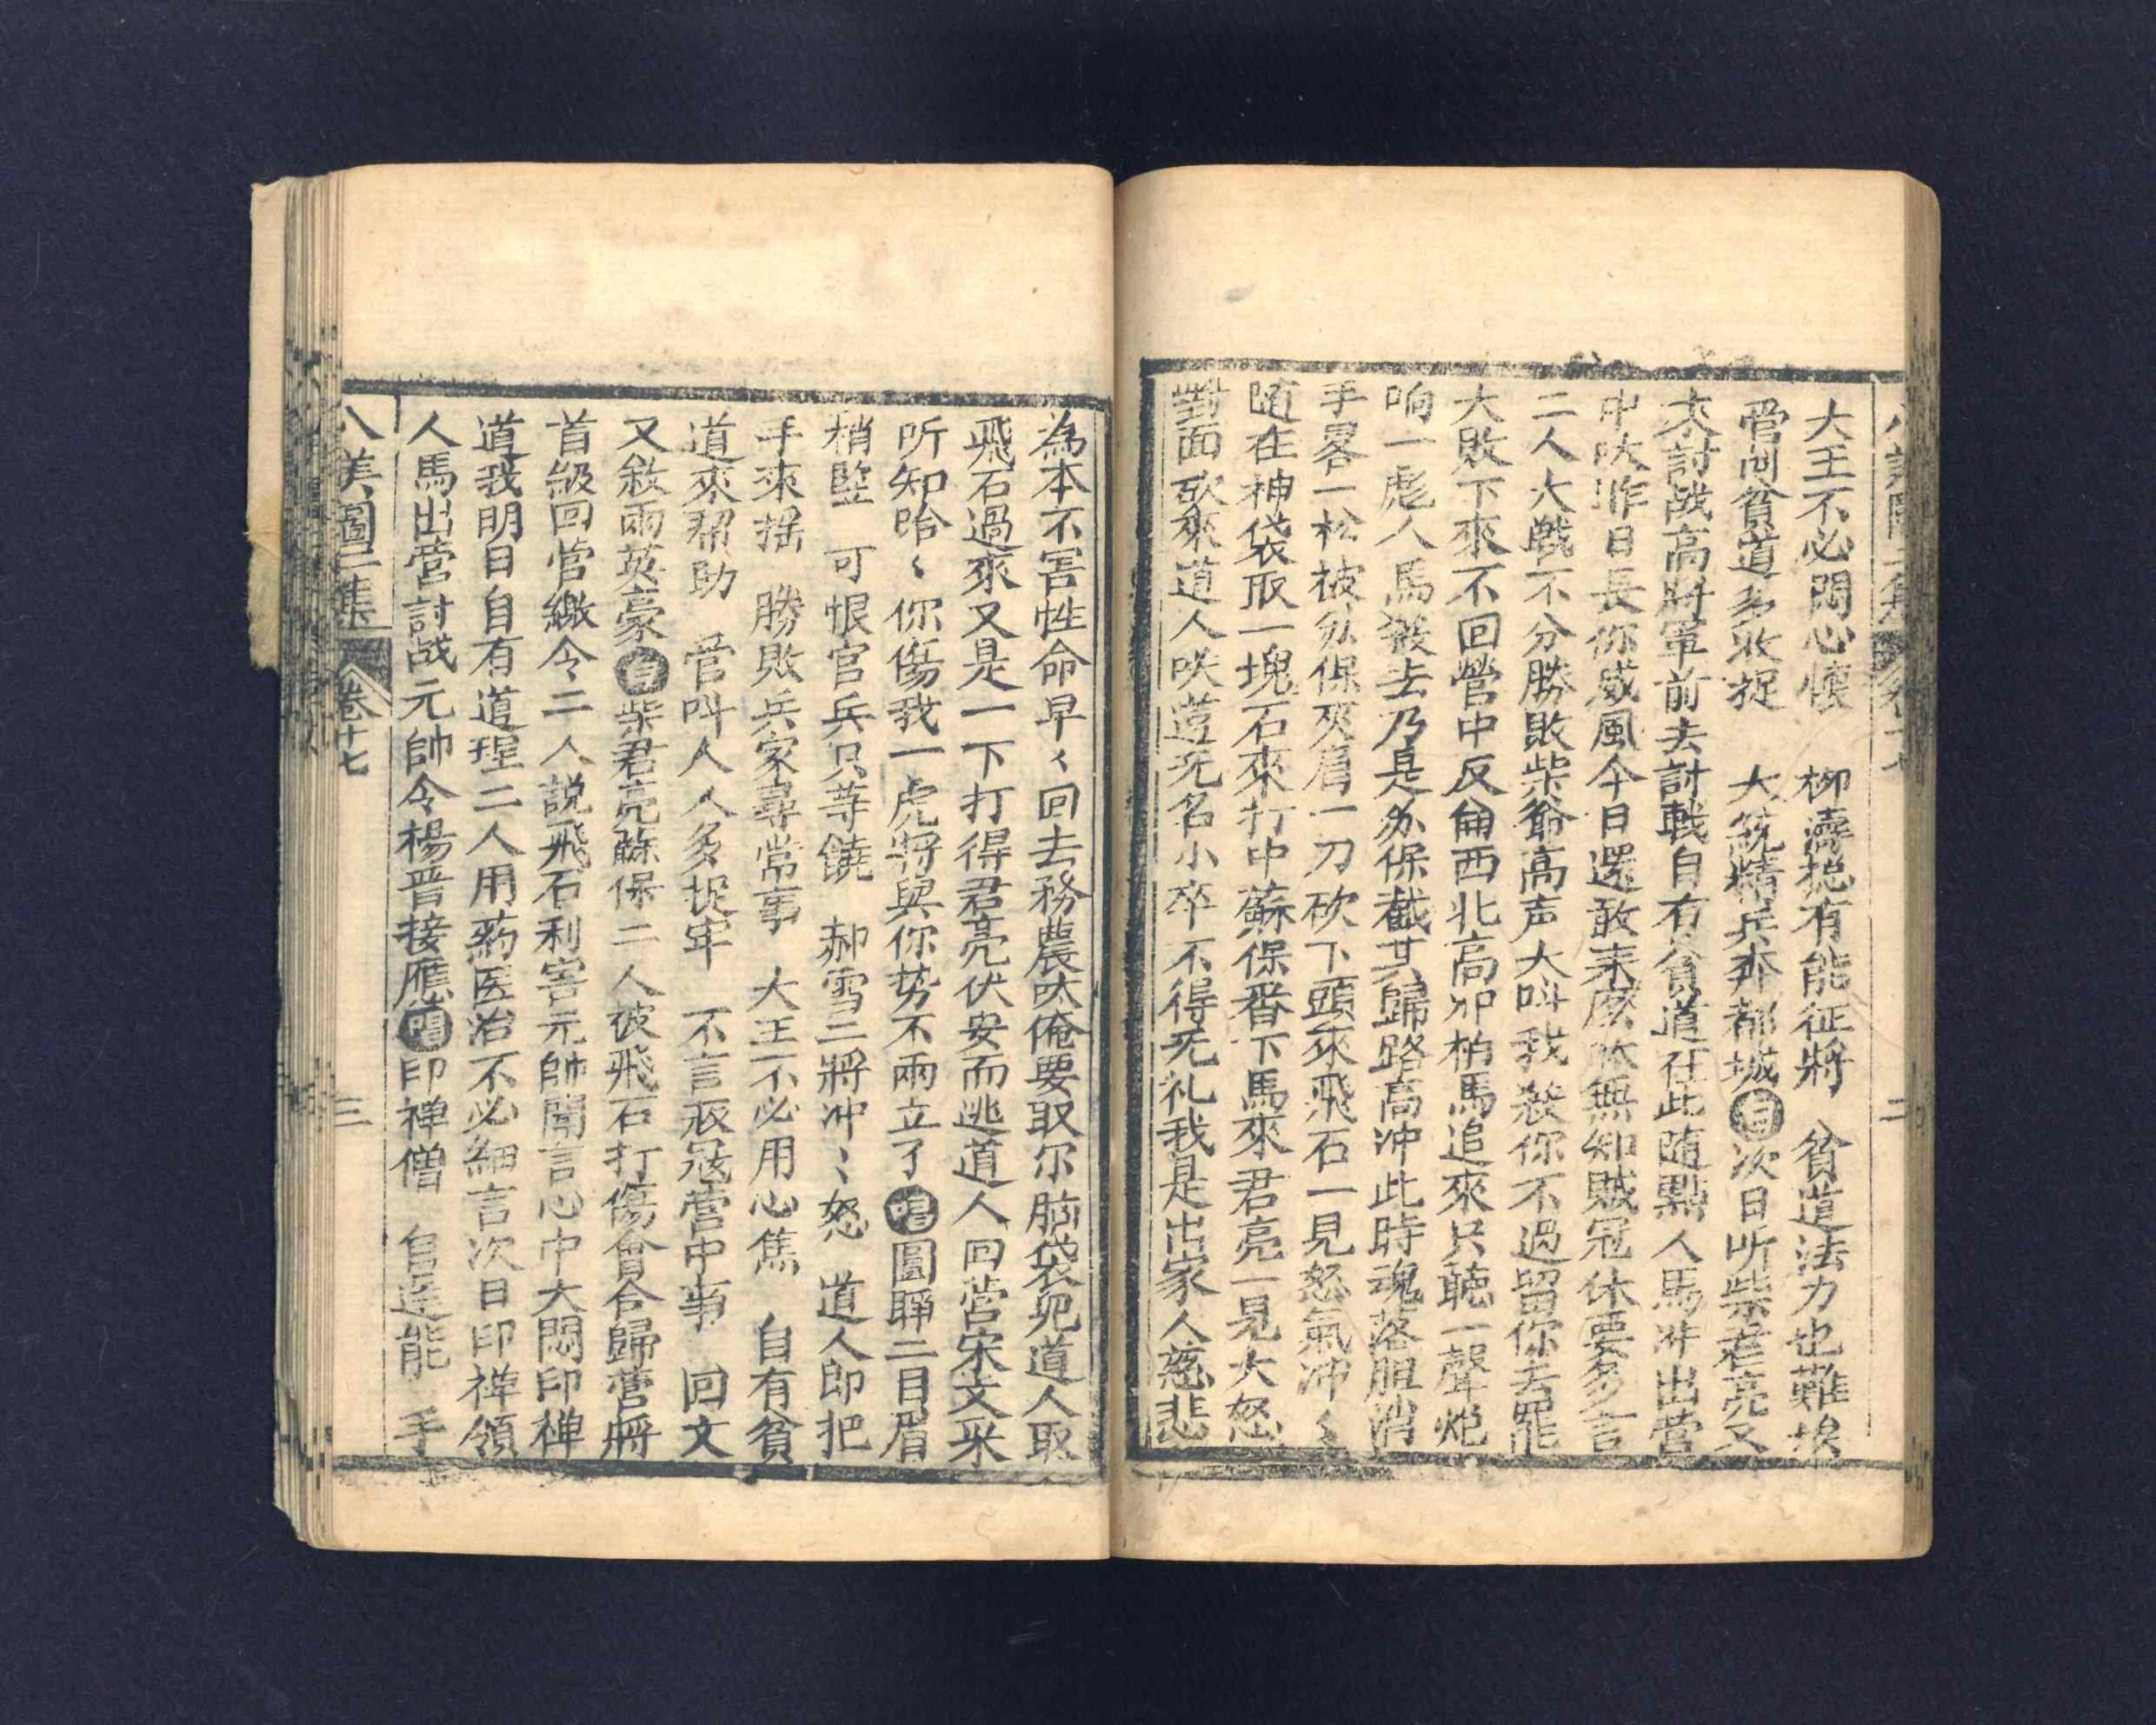 大王不必悶心懷　柳濤揔有能征將　貧道法力也難挨
管叫貧道多收捉　大統精兵奔都城白次日听柴君亮又
來討战高將軍前去討戰自有貧道在此随點人馬冲出營
中吠昨日長你威風今日還敢来麽吠無知賊冦休要多言
二人大戰不分勝敗柴爺高声大叫我殺你不過留你去罷
大敗下來不回營中反徃西北高卬柏馬追來只聽一聲炮
响一彪人馬殺去乃是苏保截其歸路高冲此時魂落胆消
手畧一松被苏保夾眉一刀砍下頭來飛石一見怒氣冲〻
随在神袋取一塊石來打中蘇保番下馬來君亮一見大怒
對面砍來道人吠這无名小卒不得无礼我是出家人慈悲
八美圖二集　卷十七　二
為本不害性命早〻回去務農吠俺要取尔腦袋兒道人取
飛石過來又是一下打得君亮伏安而逃道人回營宋文采
听知哈〻你傷我一虎將與你势不兩立了唱圓睜二目眉
稍竪　可恨官兵只等饒　郝雪二將冲〻怒　道人即把
手來揺　勝敗兵家尋常事　大王不必用心焦　自有貧
道來帮助　管叫人人多捉牢　不言冦營中事　回文
又敘兩英豪白柴君亮蘇保二人被飛石打傷會合歸營將
首級回营繳令二人説飛石利害元帥聞言心中大悶印禅
道我明日自有道理二人用药医治不必細言次日印禅領
人馬出营討战元帥令楊晋接應唱印禅僧　自逞能　手
八美圖二集　卷十七　三